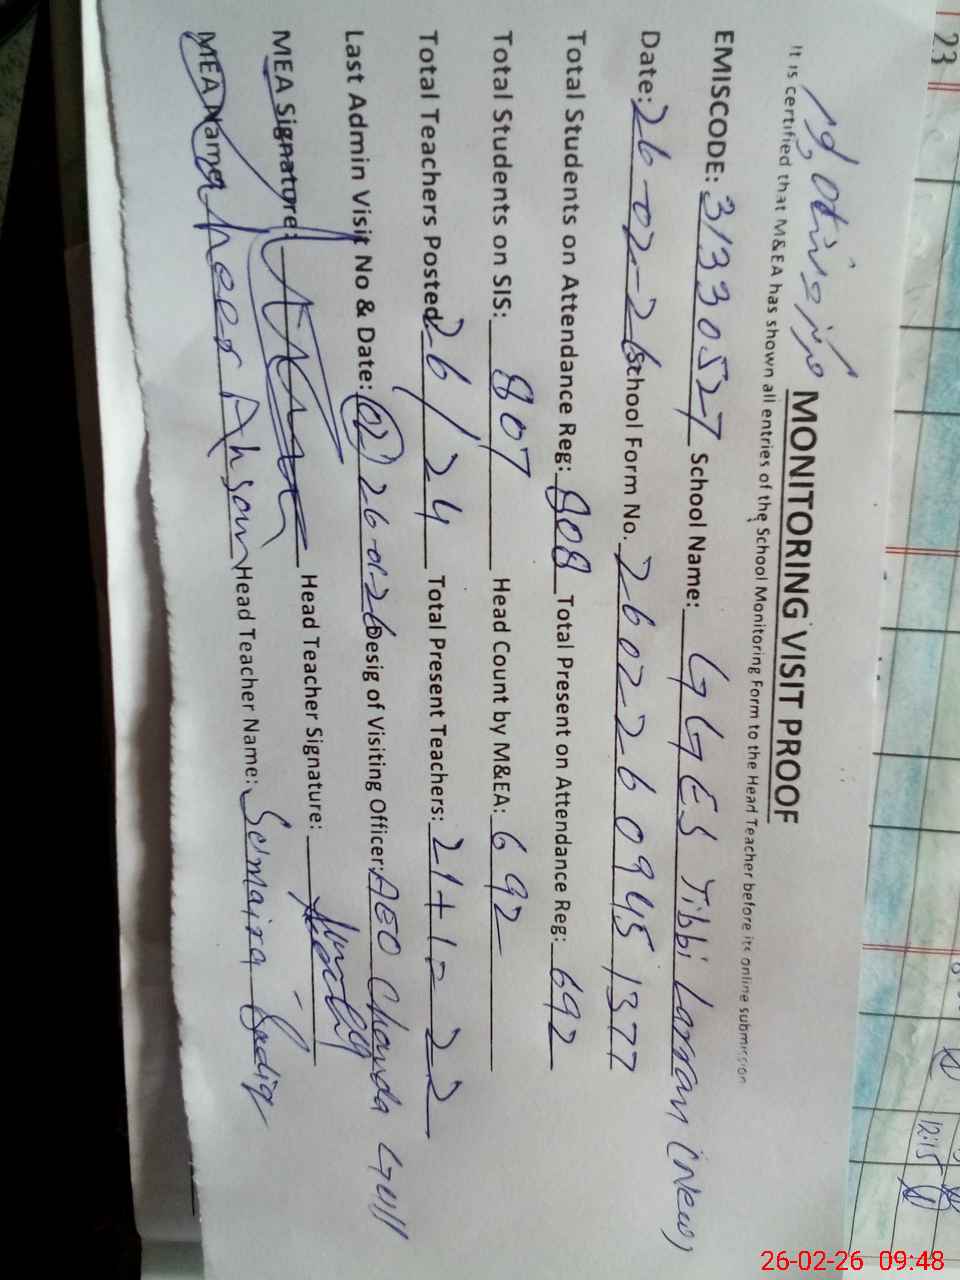 23
MONITORING VISIT PROOF
It is certified that M&EA has shown all entries of the School Monitoring Form to the Head Teacher before its online submission
EMISCODE: 31330527 School Name: GGES Tibbi Larran (New)
Date: 26-02-26 School Form No. 26022609451377
Total Students on Attendance Reg: 808 Total Present on Attendance Reg: 692
Total Students on SIS: 807 Head Count by M&EA: 692
Total Teachers Posted 26/24 Total Present Teachers: 21+1=22
Last Admin Visit No & Date: (02) 26-01-26 Desig of Visiting Officer: AEO Chanda Gull
MEA Signature: Head Teacher Signature:
MEA Name: Ahsan Head Teacher Name: Semaira Sadiq
12:15
26-02-26 09:48